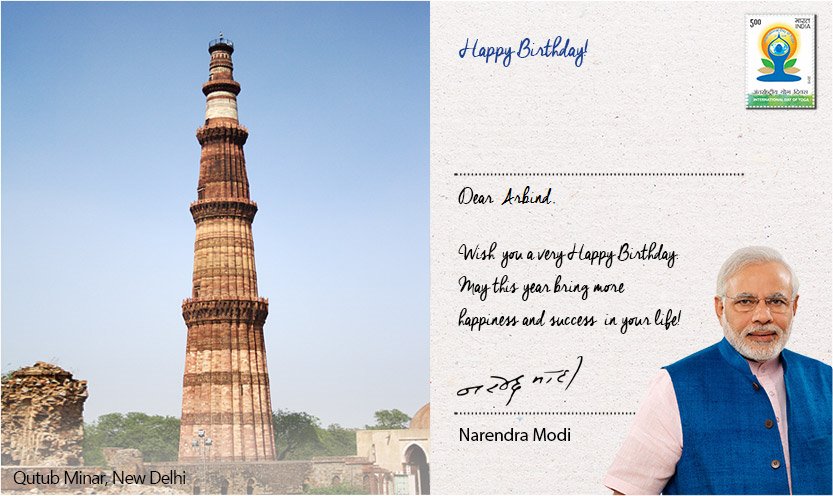 Happy Birthday!
5.00 भारत
INDIA
अंतर्राष्ट्रीय योग दिवस
INTERNATIONAL DAY OF YOGA
Dear Arbind.
Wish you a very Happy Birthday.
May this year bring more
happiness and success in your life!
नरेन्द्र मोदी
Narendra Modi
Qutub Minar, New Delhi